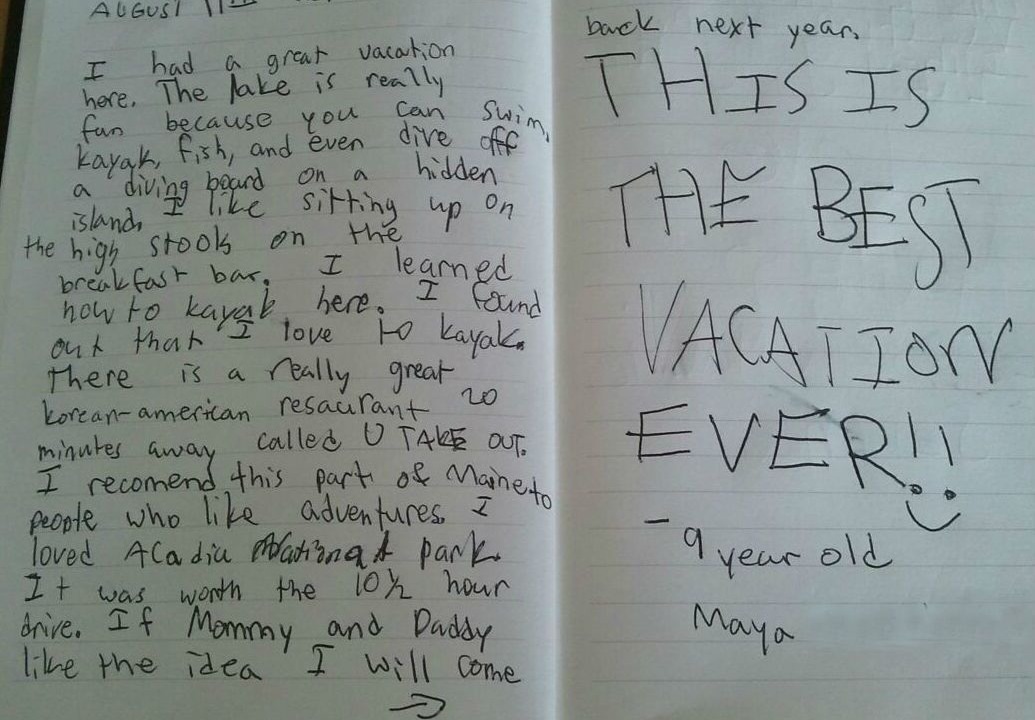 AUGUST 11th
I had a great vacation
here. The lake is really
fun because you can swim,
kayak, fish, and even dive off
a diving board on a hidden
island. I like sitting up on
the high stools on the
breakfast bar. I learned
how to kayak here. I found
out that I love to kayak.
There is a really great
korean-american resaurant 20
minutes away called U TAKE OUT.
I recomend this part of Maine to
people who like adventures. I
loved Acadia National park.
It was worth the 10½ hour
drive. If Mommy and Daddy
like the idea I will come
→
back next year.
THIS IS
THE BEST
VACATION
EVER!!
- 9 year old
Maya